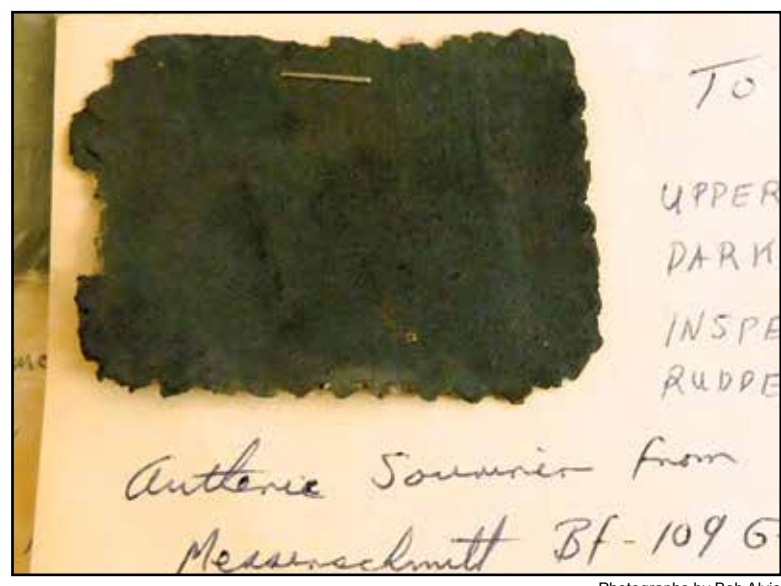 TO
UPPER
DARK
INSPE
RUDDE
Authenic Souvenir from
Messerschmitt Bf-109 G-
Photographs by Bob Alvis